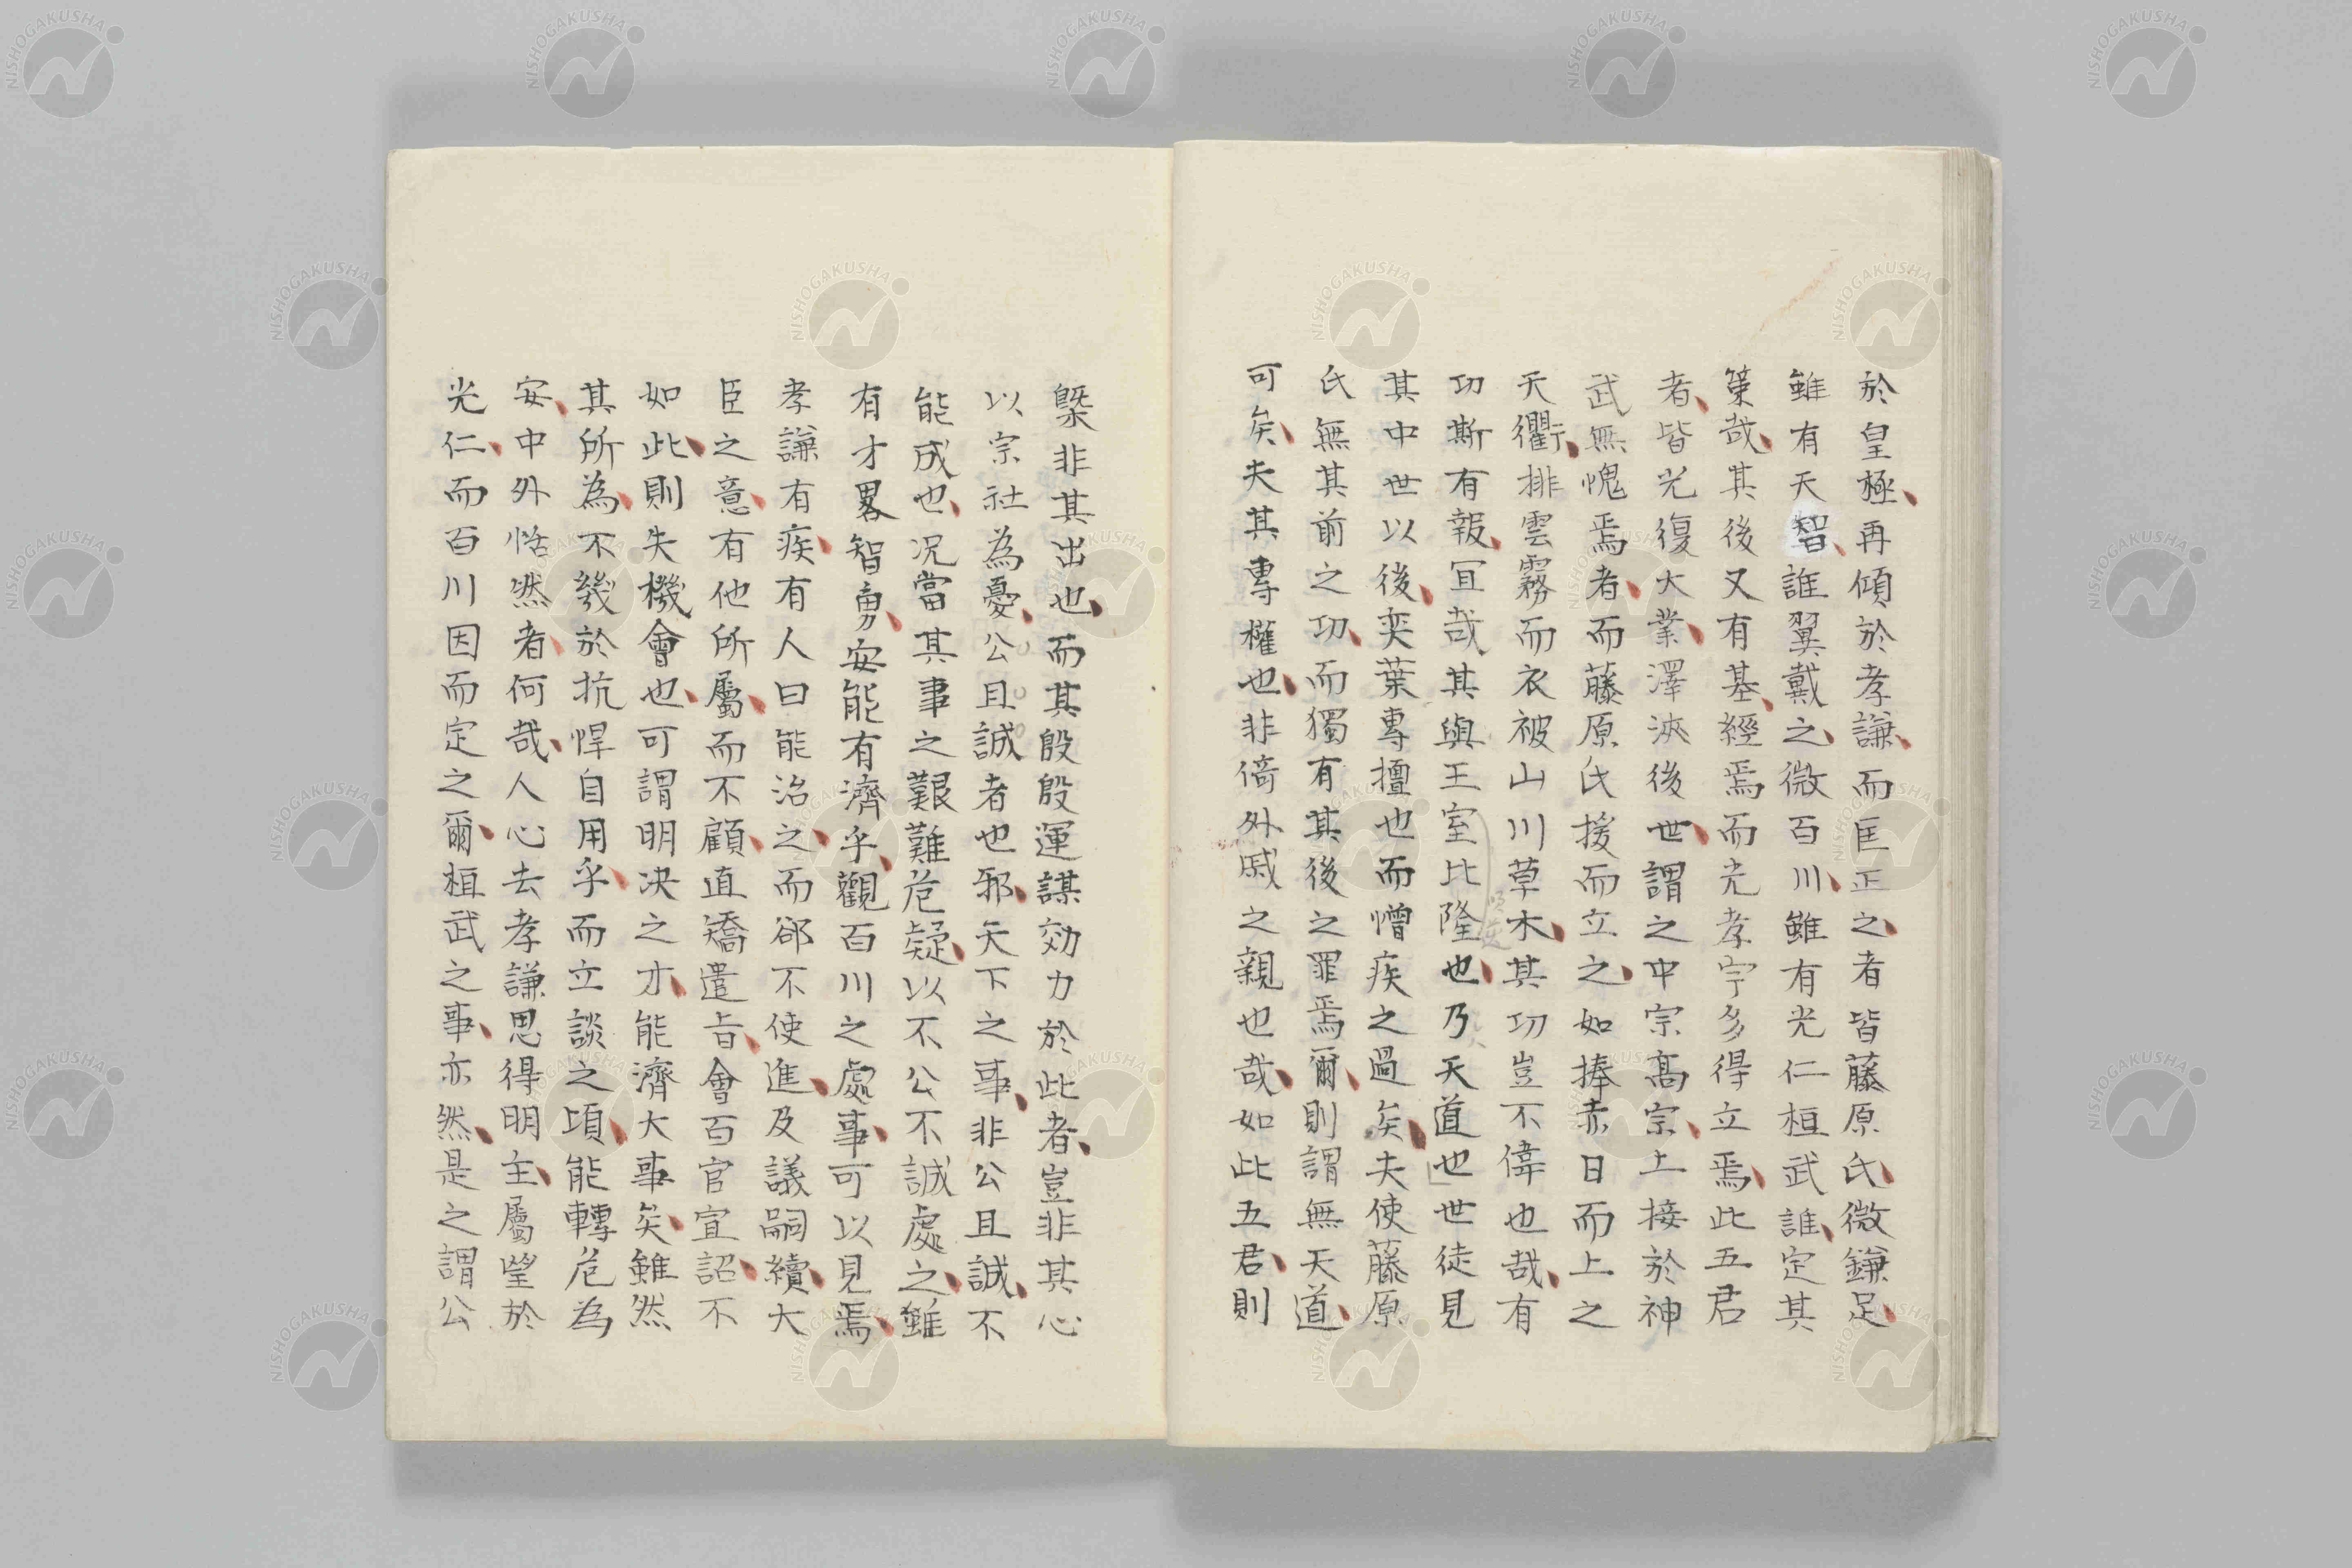 於皇極再傾於孝謙而匡正之者皆藤原氏微鎌足
雖有天智誰翼戴之微百川雖有光仁桓武誰定其
策哉其後又有基經焉而光孝宇多得立焉此五君
者皆光復大業澤浹後世謂之中宗髙宗上接於神
武無愧焉者而藤原氏援而立之如捧赤日而上之
天衢排雲霧而衣被山川草木其功豈不偉也哉有
功斯有報冝哉其與王室比隆也乃天道也世徒見
其中世以後奕葉專擅也而憎疾之過矣夫使藤原
氏無其前之功而獨有其後之罪焉爾則謂無天道
可矣夫其專權也非倚外戚之親也哉如此五君則
槩非其出也而其殷殷運謀効力於此者豈非其心
以宗社為憂公且誠者也邪天下之事非公且誠不
能成也况當其事之艱難危疑以不公不誠處之雖
有才畧智勇安能有濟乎觀百川之處事可以見焉
孝謙有疾有人曰能治之而郤不使進及議嗣續大
臣之意有他所屬而不顧直矯遣旨會百官宣詔不
如此則失機會也可謂明决之才能濟大事矣雖然
其所為不幾於抗悍自用乎而立談之頃能轉危為
安中外恬然者何哉人心去孝謙思得明主屬望於
光仁而百川因而定之爾桓武之事亦然是之謂公
NISHOGAKUSHA